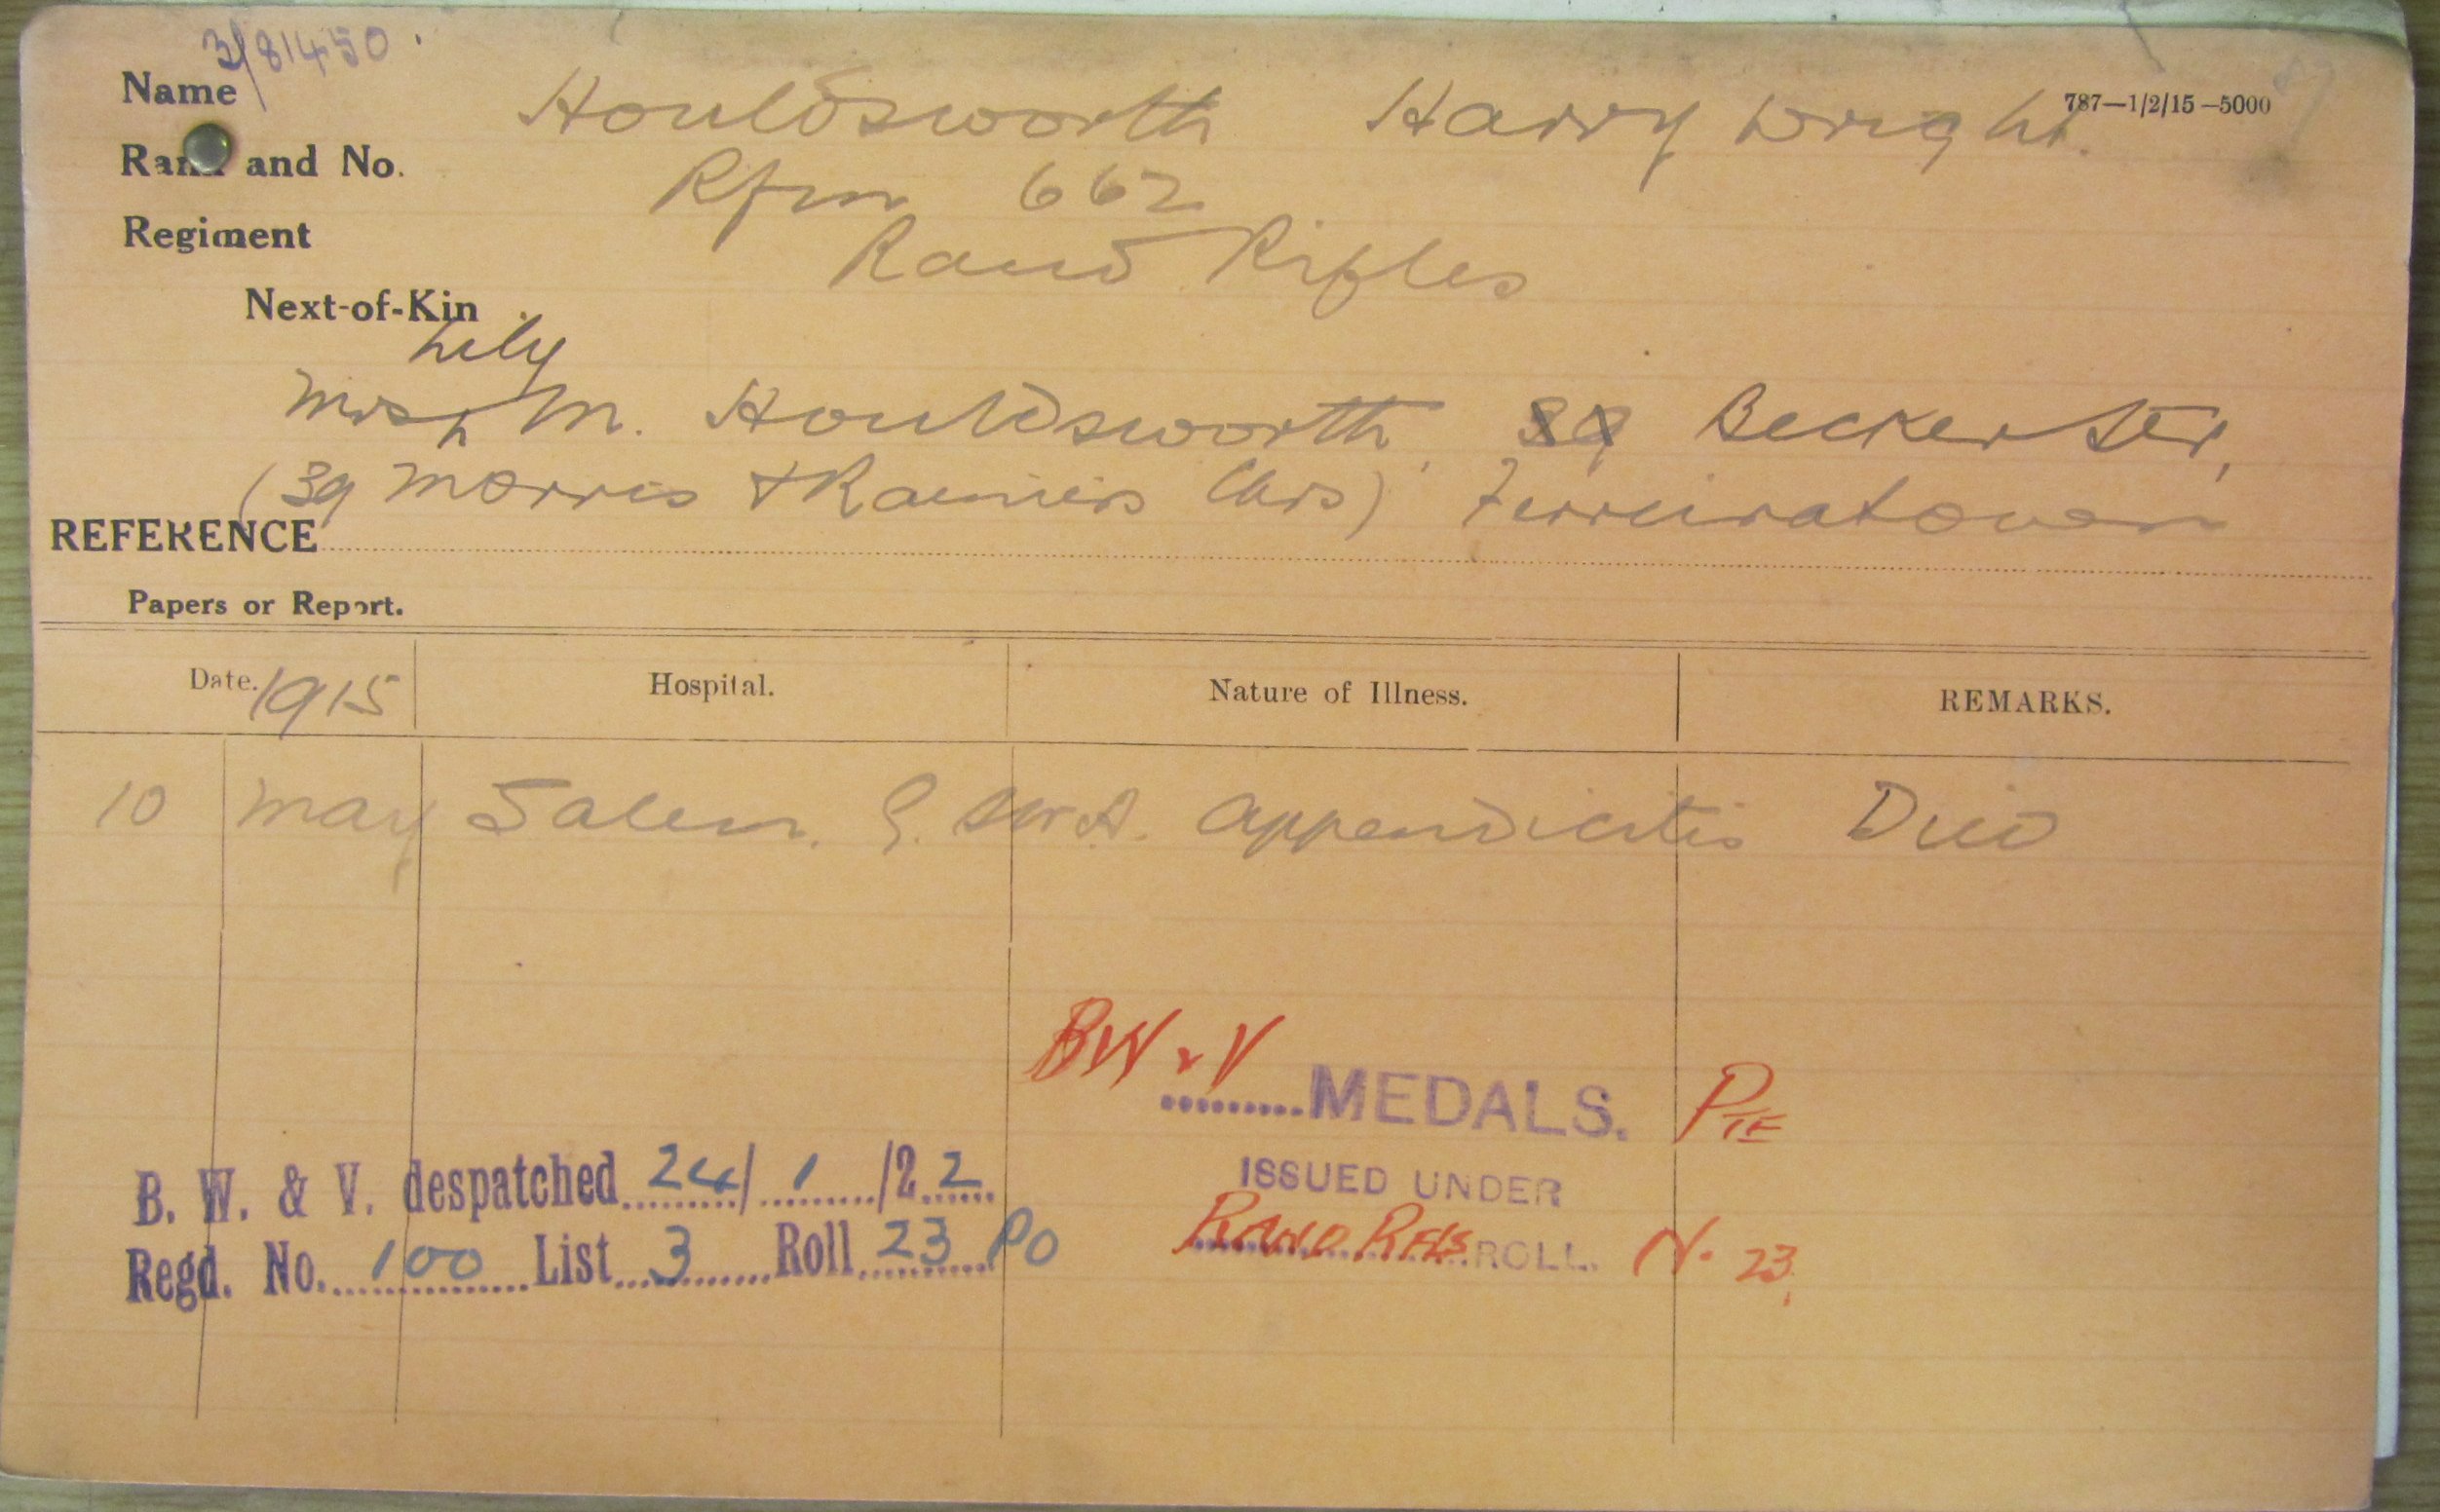 3/81450
Name Houldsworth Harry Wright.
787—1/2/15—5000
Rank and No. Rfm 662
Regiment Rand Rifles
Next-of-Kin
Lily
Mrs M. Houldsworth, 39 Becker Str,
(39 Morris & Chrs) Ferreiratown
REFERENCE
Papers or Report.
Date. 1915 Hospital. Nature of Illness. REMARKS.
10 May Salem. G.S.W.A. Appendicitis Died
BW & V
MEDALS. PTE
B. W. & V. despatched 24/1/22
ISSUED UNDER
Regd. No. 100 List 3 Roll 23 PO
RAND RFLS ROLL. N. 23